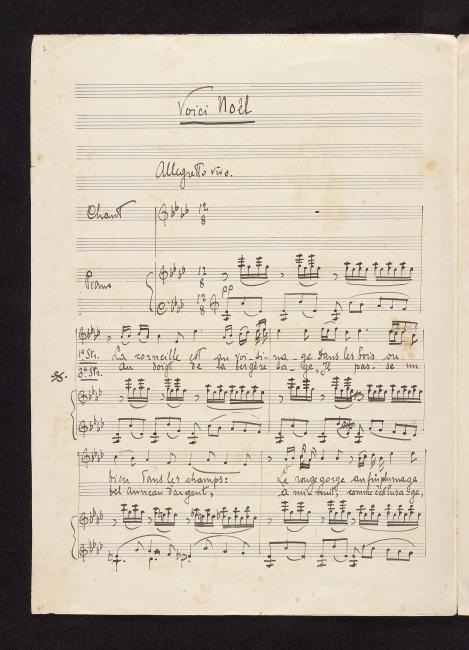 Voici Noël
Allegretto vivo.
Chant
12 8
Piano
12 8
12 8
pp
1e Str. La corneille est au voisi-na-ge Dans les bois ou
2e Str. Au doigt de la bergère sa-ge, Il pas-se un
bien Dans les champs: Le rouge gorge au fin plumage
bel anneau d'argent, à mi-nuit, comme c'est l'usage,